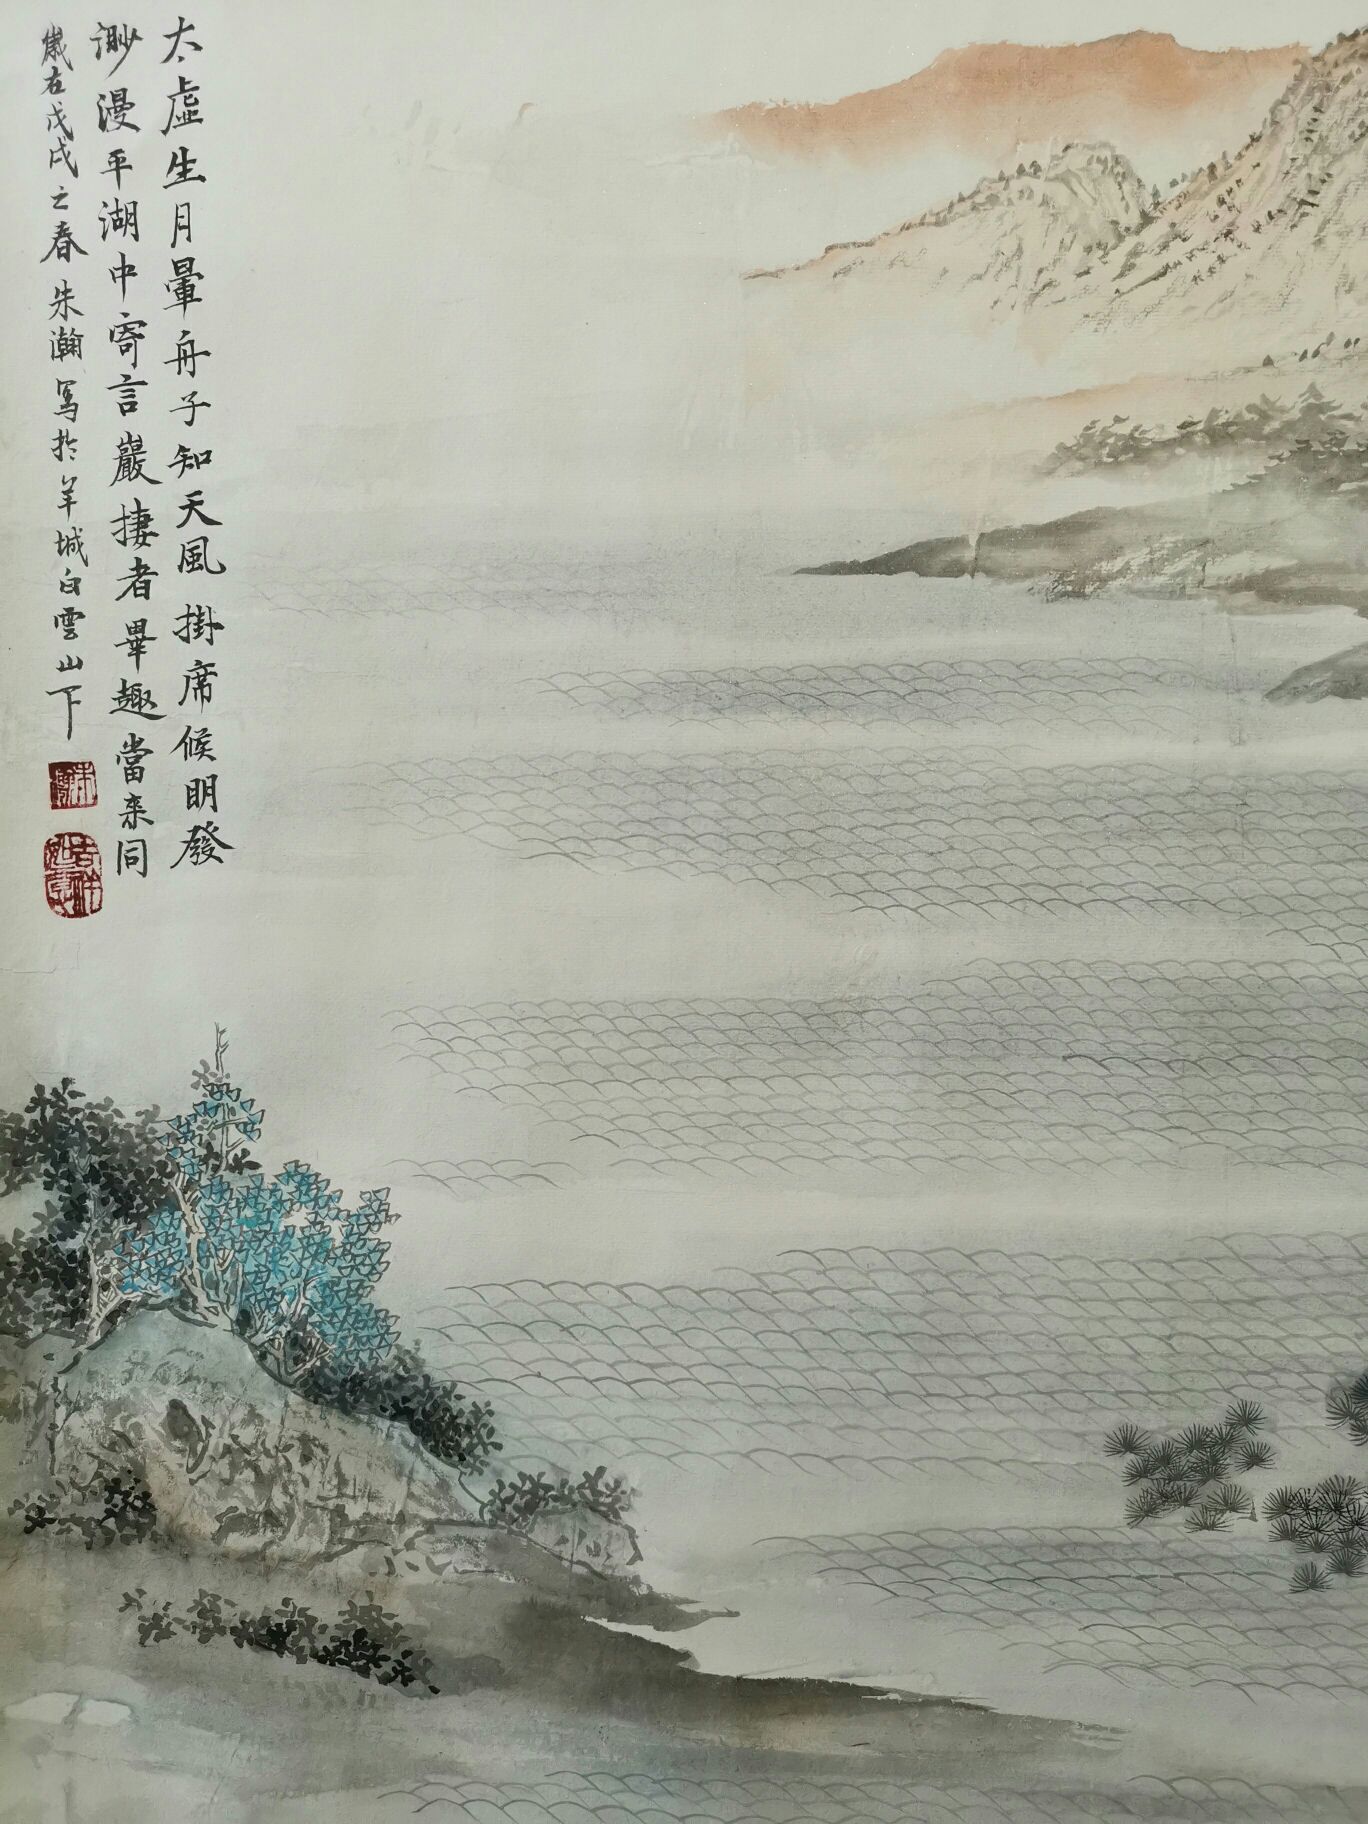 太虛生月暈舟子知天風掛席候明發
渺漫平湖中寄言巖捿者畢趣當来同
歲在戊戌之春朱瀚寫於羊城白雲山下
朱瀚
吉祥如意